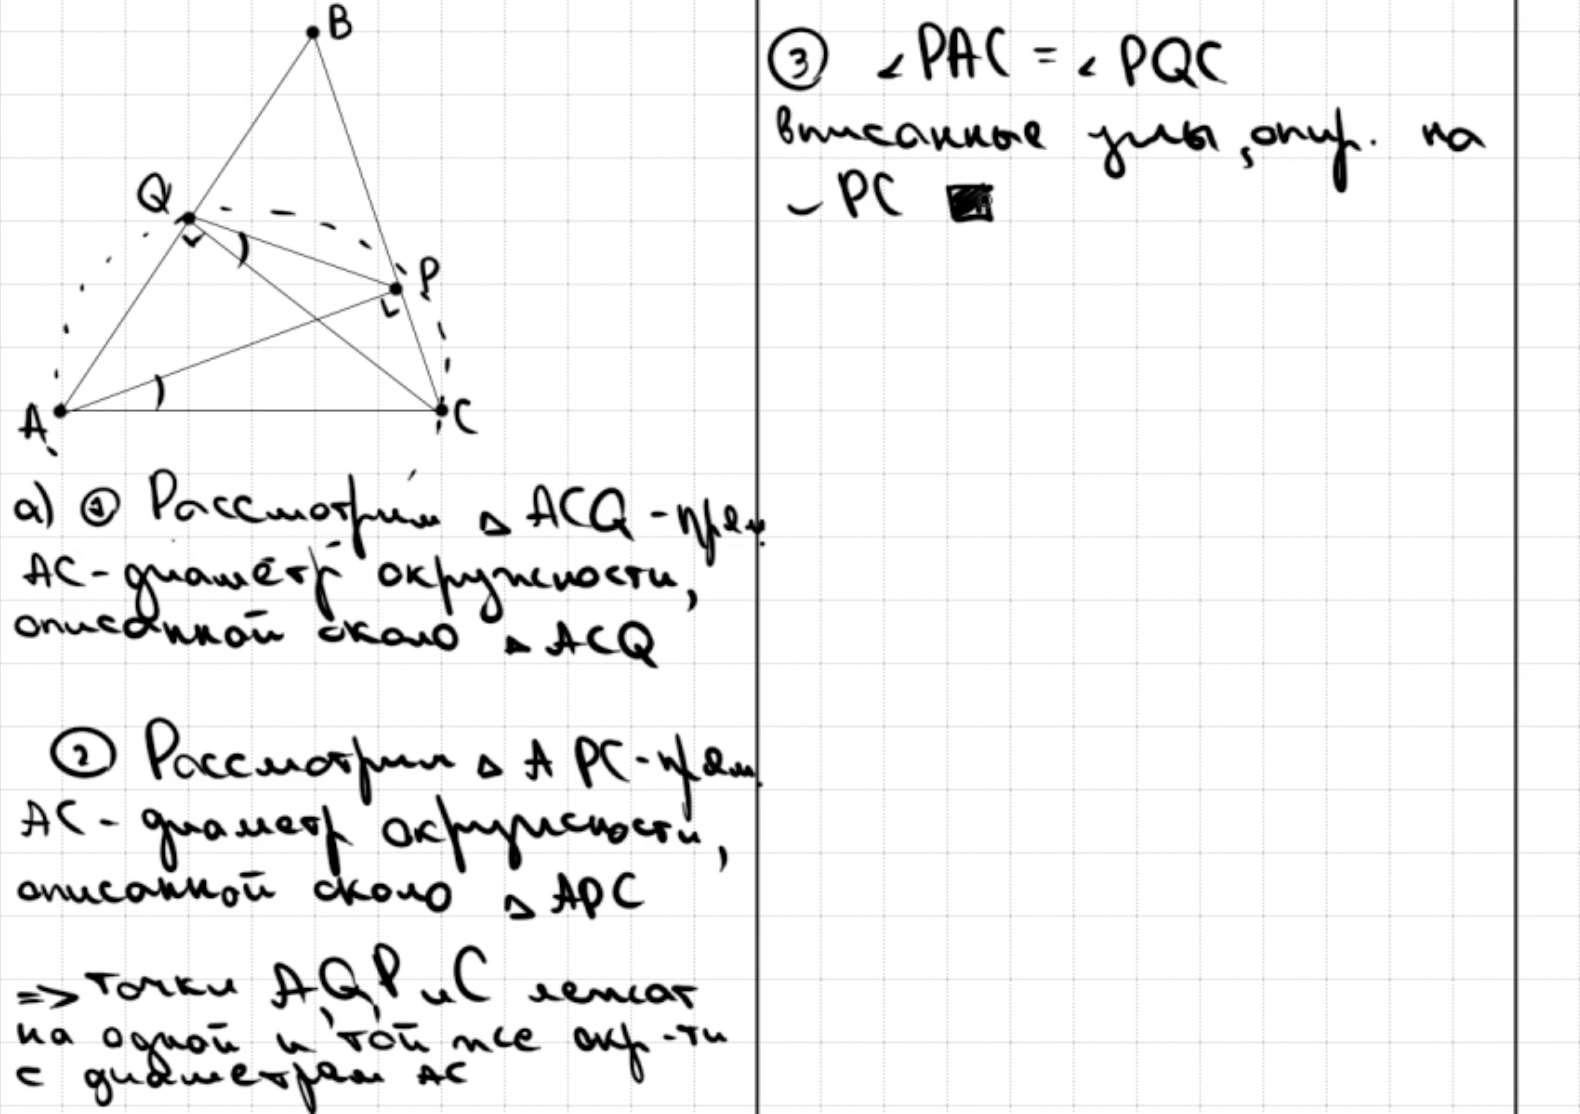 B
Q
P
A
C
а) ① Рассмотрим △ ACQ - прям.
AC - диаметр окружности,
описанной около △ ACQ
② Рассмотрим △ APC - прям.
AC - диаметр окружности,
описанной около △ APC
=> точки A, Q, P и C лежат
на одной и той же окр-ти
с диаметром AC
③ ∠PAC = ∠PQC
вписанные углы, опир. на
◡ PC